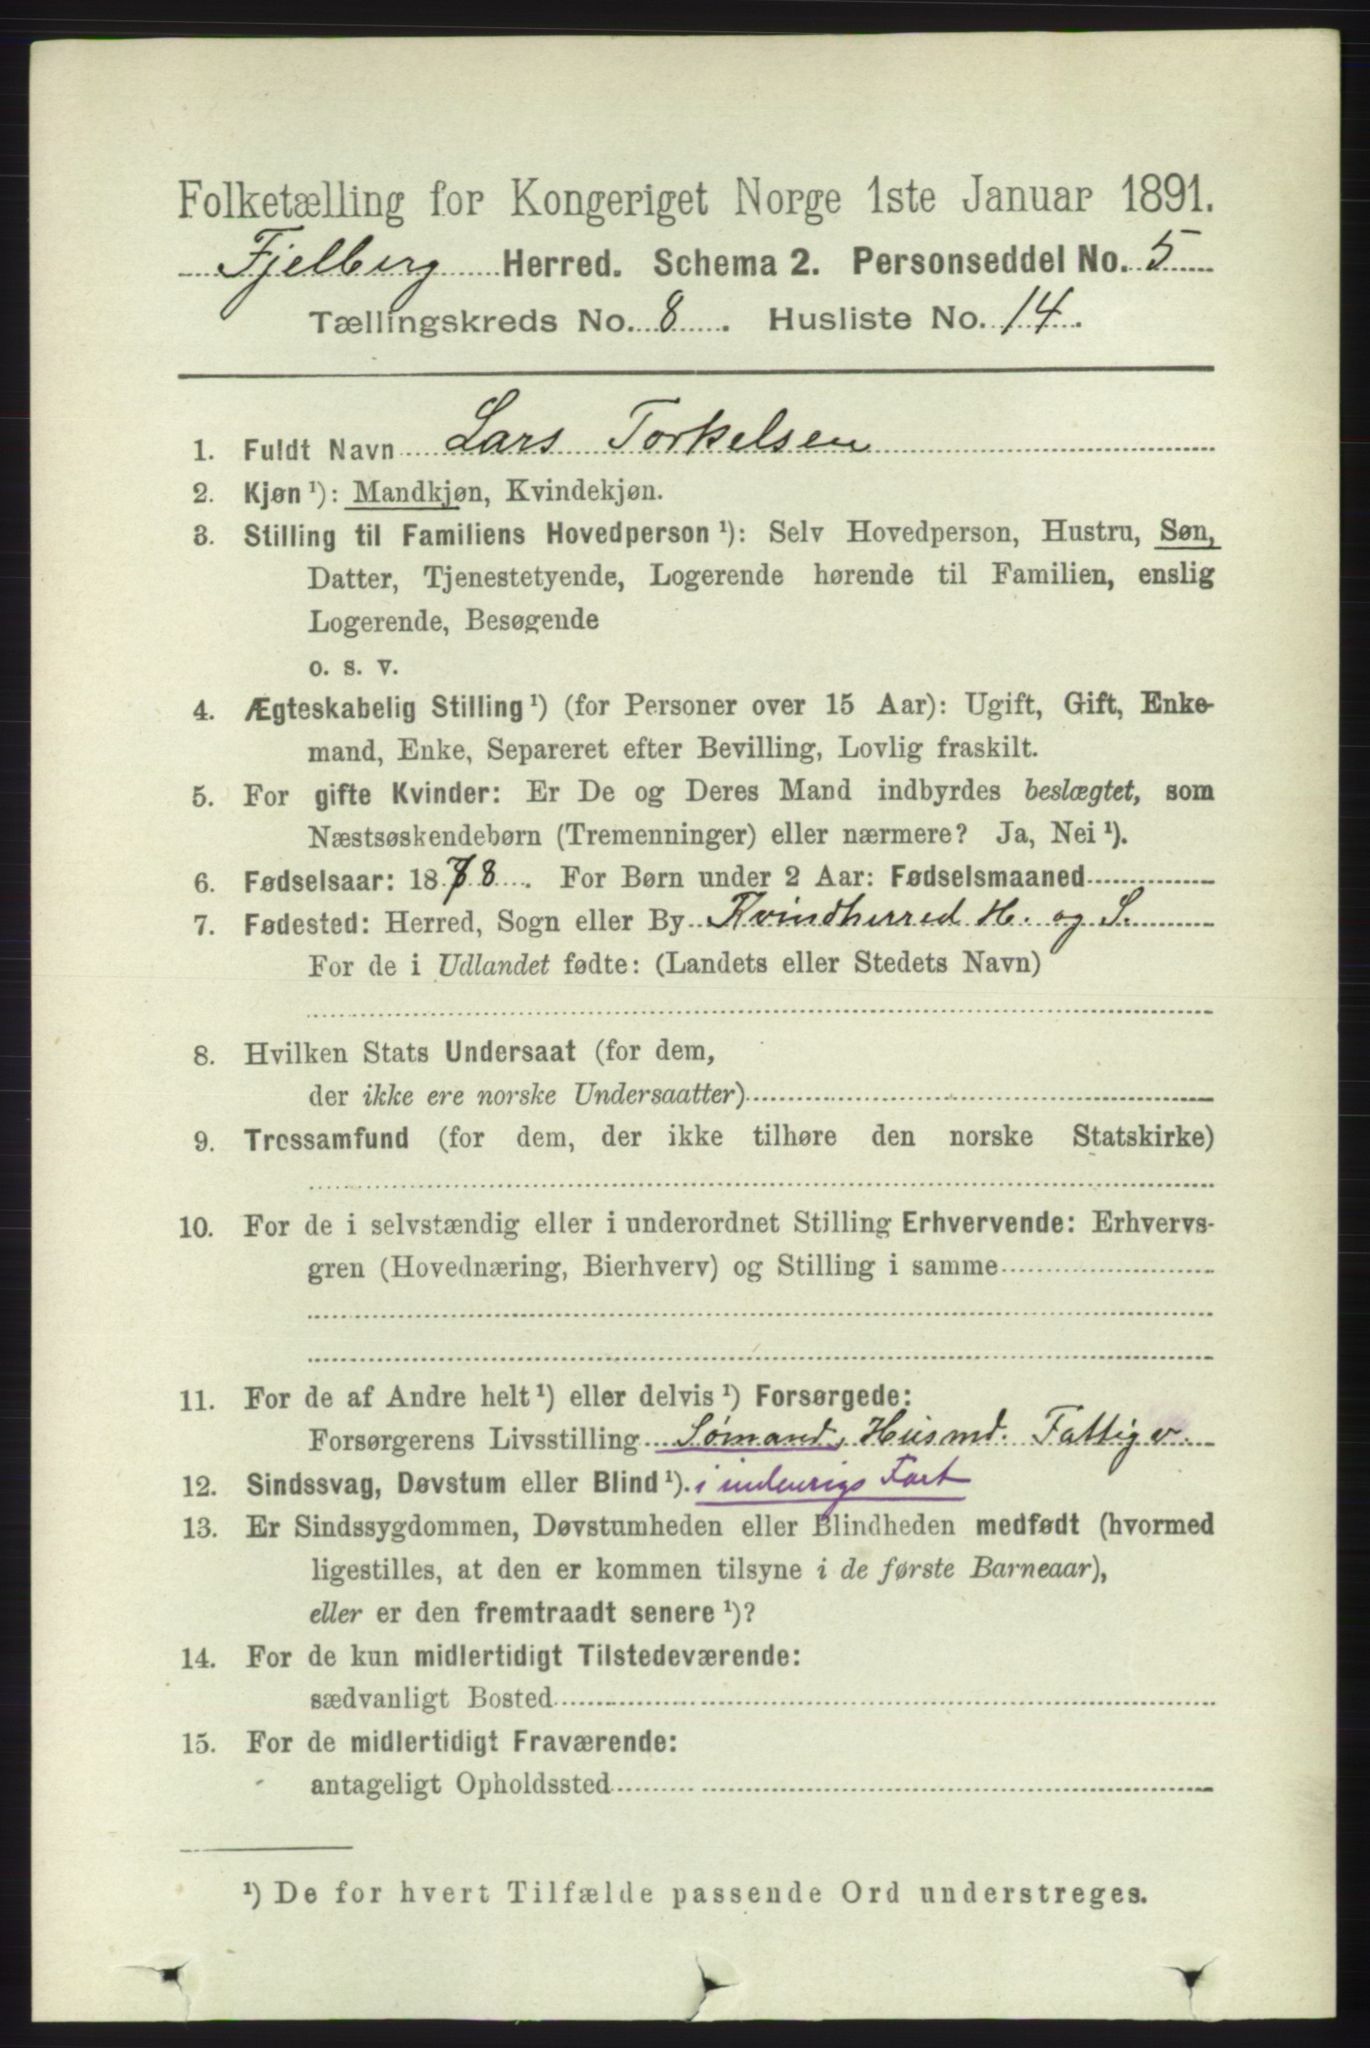 Folketælling for Kongeriget Norge 1ste Januar 1891.
Fjelberg Herred. Schema 2. Personseddel No. 5
Tællingskreds No. 8. Husliste No. 14.
1. Fuldt Navn Lars Torkelsen
2. Kjøn ¹): Mandkjøn, Kvindekjøn.
3. Stilling til Familiens Hovedperson ¹): Selv Hovedperson, Hustru, Søn,
Datter, Tjenestetyende, Logerende hørende til Familien, enslig
Logerende, Besøgende
o. s. v.
4. Ægteskabelig Stilling ¹) (for Personer over 15 Aar): Ugift, Gift, Enke-
mand, Enke, Separeret efter Bevilling, Lovlig fraskilt.
5. For gifte Kvinder: Er De og Deres Mand indbyrdes beslægtet, som
Næstsøskendebørn (Tremenninger) eller nærmere? Ja, Nei ¹).
6. Fødselsaar: 1878. For Børn under 2 Aar: Fødselsmaaned
7. Fødested: Herred, Sogn eller By Kvindherred H. og S.
For de i Udlandet fødte: (Landets eller Stedets Navn)
8. Hvilken Stats Undersaat (for dem,
der ikke ere norske Undersaatter)
9. Trossamfund (for dem, der ikke tilhøre den norske Statskirke)
10. For de i selvstændig eller i underordnet Stilling Erhvervende: Erhvervs-
gren (Hovednæring, Bierhverv) og Stilling i samme
11. For de af Andre helt ¹) eller delvis ¹) Forsørgede:
Forsørgerens Livsstilling Sømand, Husmd. Fattigv.
12. Sindssvag, Døvstum eller Blind ¹). i indenrigs Fart
13. Er Sindssygdommen, Døvstumheden eller Blindheden medfødt (hvormed
ligestilles, at den er kommen tilsyne i de første Barneaar),
eller er den fremtraadt senere ¹)?
14. For de kun midlertidigt Tilstedeværende:
sædvanligt Bosted
15. For de midlertidigt Fraværende:
antageligt Opholdssted
¹) De for hvert Tilfælde passende Ord understreges.